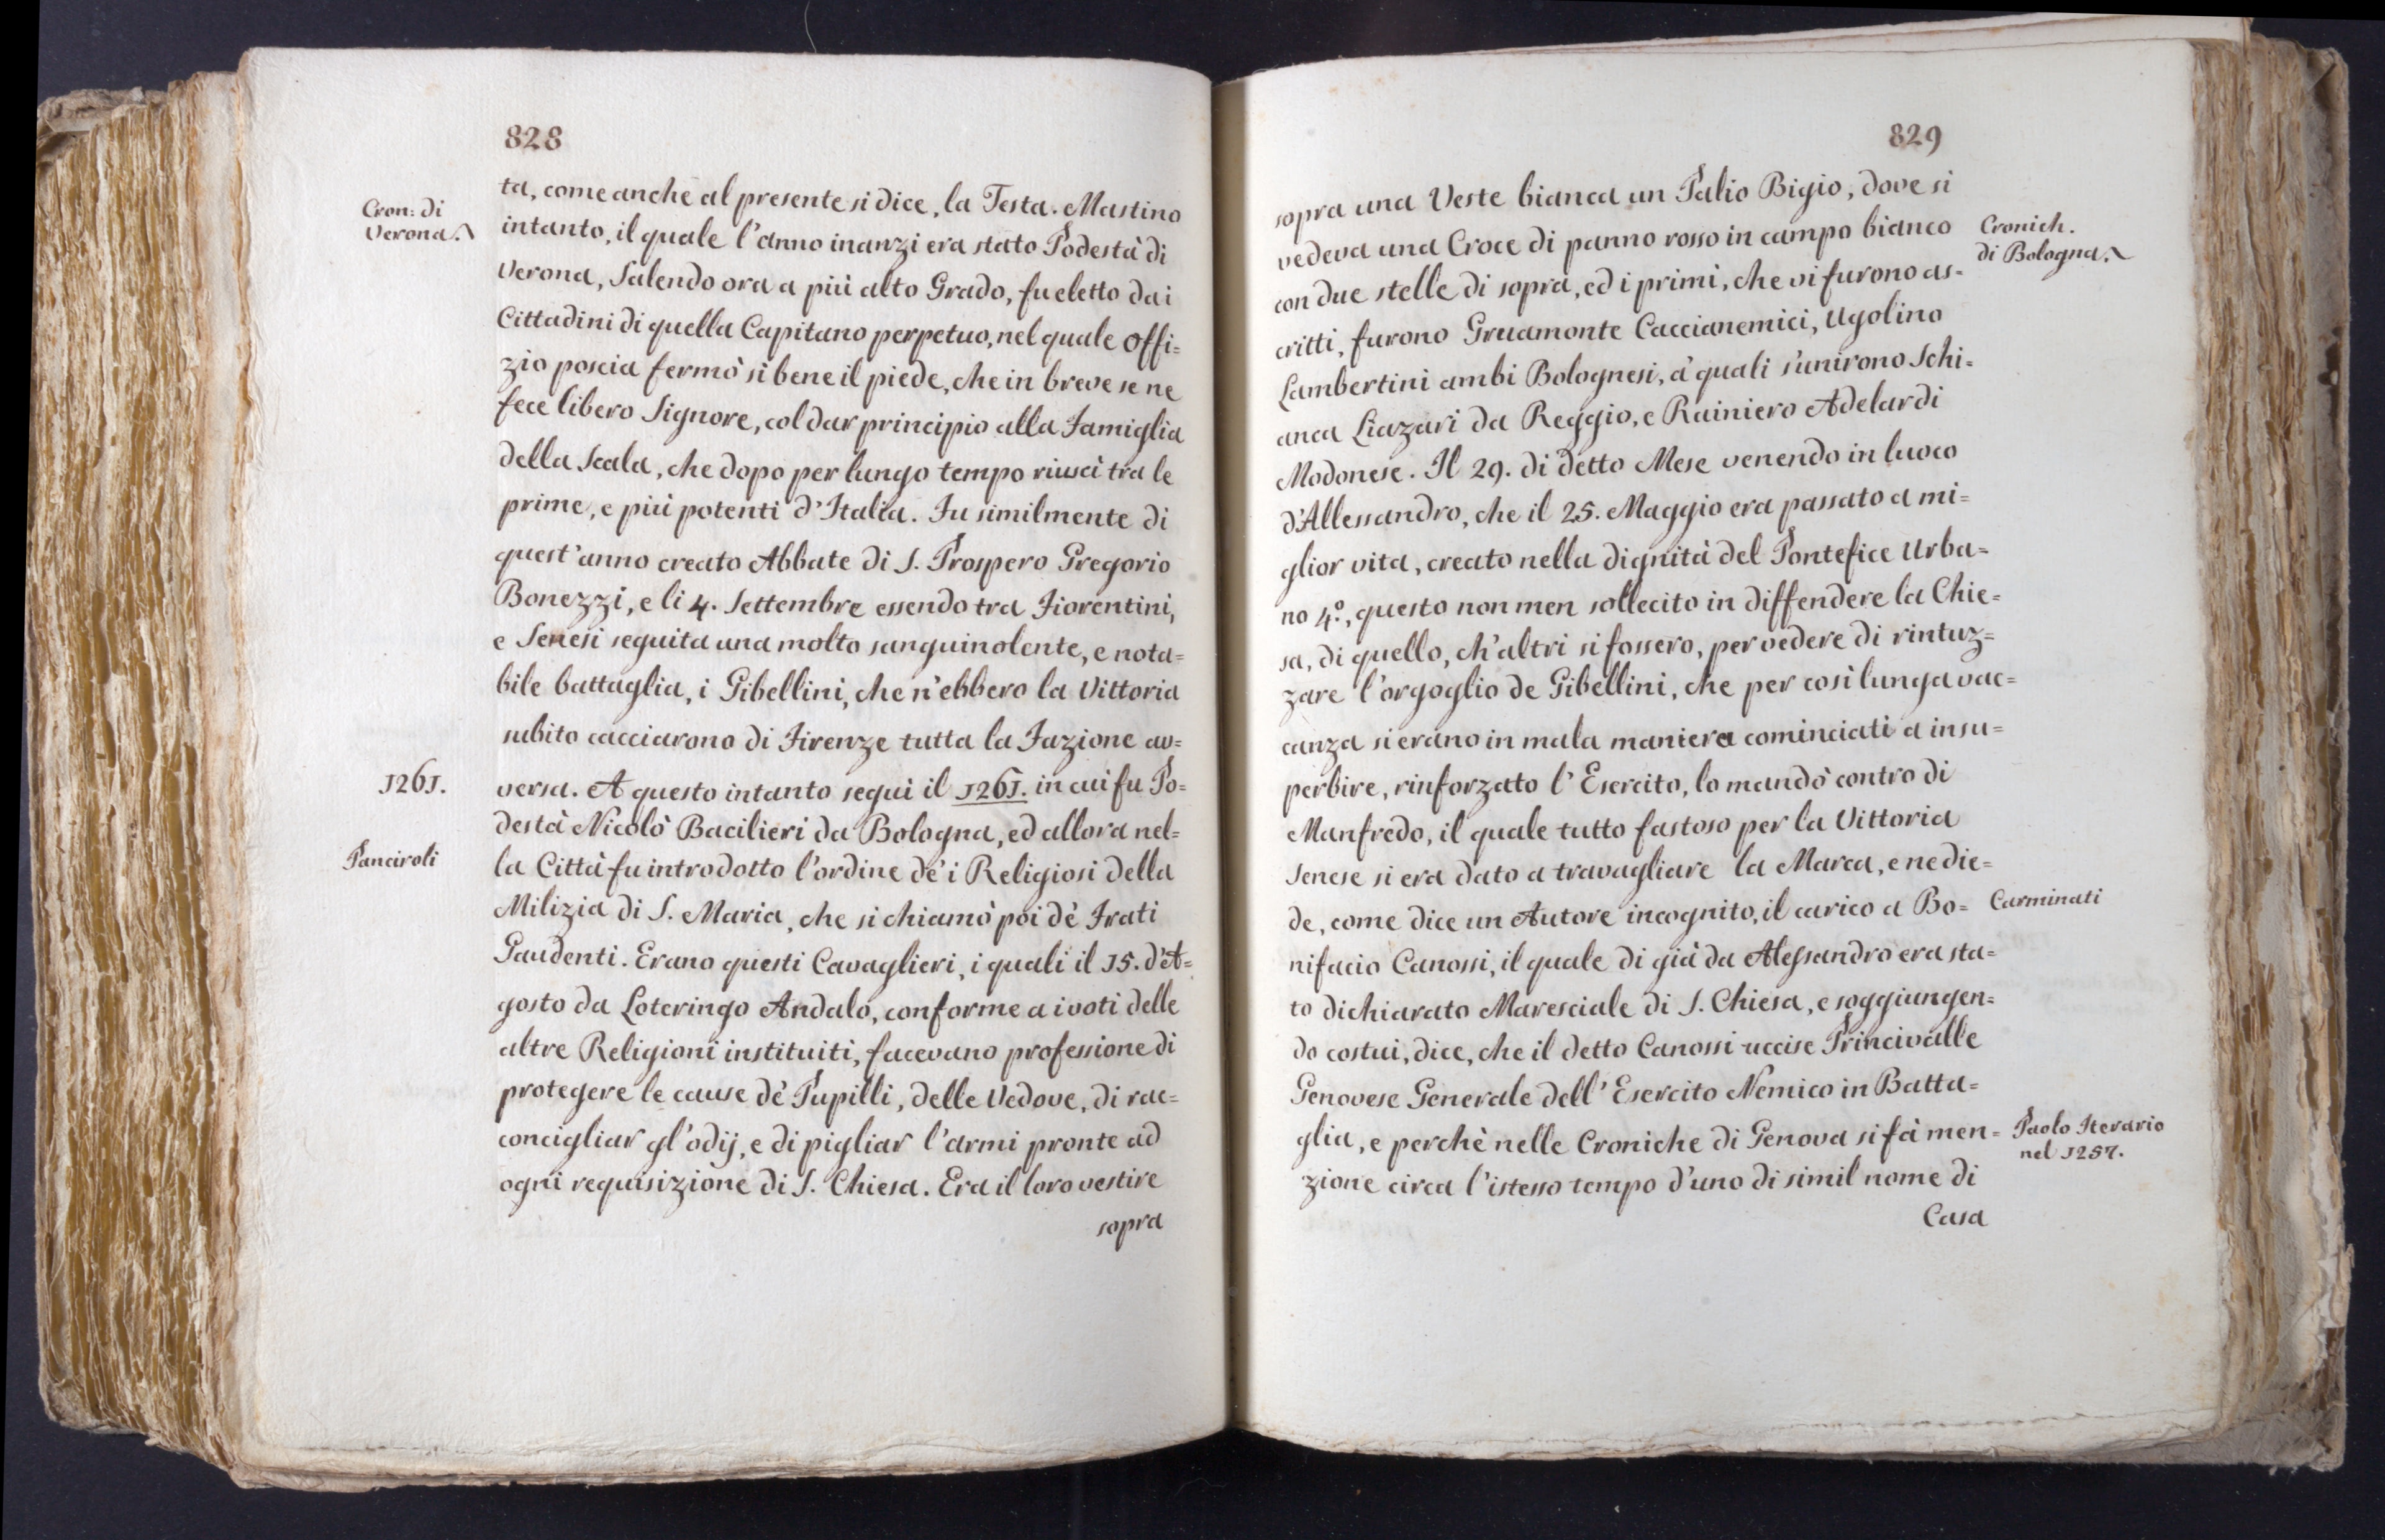 828
Cron: di
Verona.
ta, come anche al presente si dice, la Testa. Mastino
intanto, il quale l'anno inanzi era stato Podestà di
Verona, Salendo ora a più alto Grado, fu eletto dai
Cittadini di quella Capitano perpetuo, nel quale Offi=
zio poscia fermò sì bene il piede, che in breve se ne
fece libero Signore, col dar principio alla Famiglia
della Scala, che dopo per lungo tempo riuscì tra le
prime, e più potenti d'Italia. Fu similmente di
quest'anno creato Abbate di S. Prospero Gregorio
Bonezzi, e li 4. Settembre essendo tra Fiorentini,
e Senesi seguita una molto sanguinolente, e nota=
bile battaglia, i Gibellini, che n'ebbero la Vittoria
subito cacciarono di Firenze tutta la Fazione av=
1261.
versa. A questo intanto seguì il 1261. in cui fu Po=
destà Nicolò Bacilieri da Bologna, ed allora nel=
Panciroli
la Città fu introdotto l'ordine de'i Religiosi della
Milizia di S. Maria, che si chiamò poi dè Frati
Gaudenti. Erano questi Cavaglieri, i quali il 15. d'A=
gosto da Loteringo Andalò, conforme a i voti delle
altre Religioni instituiti, facevano professione di
protegere le cause dè Pupilli, delle Vedove, di rac=
concigliar gl'odij, e di pigliar l'armi pronte ad
ogni requisizione di S. Chiesa. Era il loro vestire
sopra
829
sopra una Veste bianca un Palio Bigio, dove si
vedeva una Croce di panno rosso in campo bianco
Cronich.
di Bologna.
con due stelle di sopra, ed i primi, che vi furono as=
critti, furono Gruamonte Caccianemici, Ugolino
Lambertini ambi Bolognesi, à quali s'unirono Schi=
anca Liazari da Reggio, e Rainiero Adelardi
Modonese. Il 29. di detto Mese venendo in luoco
d'Allessandro, che il 25. Maggio era passato a mi=
glior vita, creato nella dignità del Pontefice Urba=
no 4º., questo non men sollecito in diffendere la Chie=
sa, di quello, ch'altri si fossero, per vedere di rintuz=
zare l'orgoglio de Gibellini, che per così lunga vac=
canza si erano in mala maniera cominciati a insu=
perbire, rinforzato l'Esercito, lo mandò contro di
Manfredo, il quale tutto fastoso per la Vittoria
Senese si era dato a travagliare la Marca, e ne die=
de, come dice un Autore incognito, il carico a Bo=
Carminati
nifacio Canossi, il quale di già da Alessandro era sta=
to dichiarato Maresciale di S. Chiesa, e soggiungen=
do costui, dice, che il detto Canossi uccise Princivalle
Genovese Generale dell'Esercito Nemico in Batta=
glia, e perchè nelle Croniche di Genova si fà men=
Paolo Iterario
nel 1257.
zione circa l'istesso tempo d'uno di simil nome di
Casa